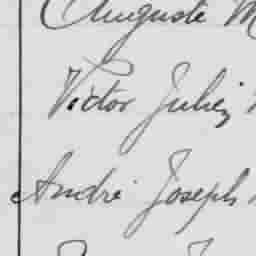 Auguste M
Victor Julien
André Joseph